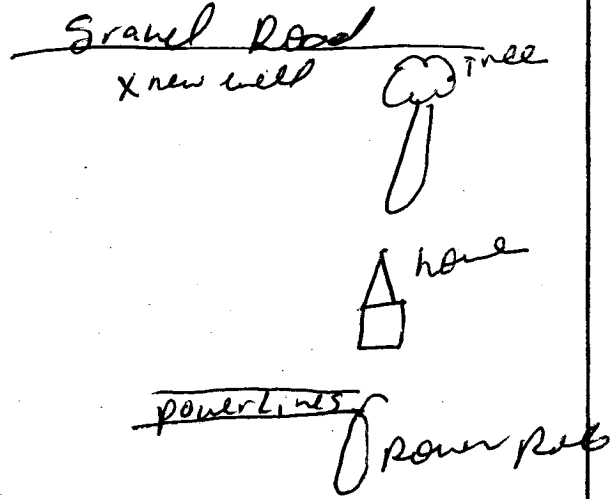 Gravel Road
x new well
Tree
home
powerlines
power pole